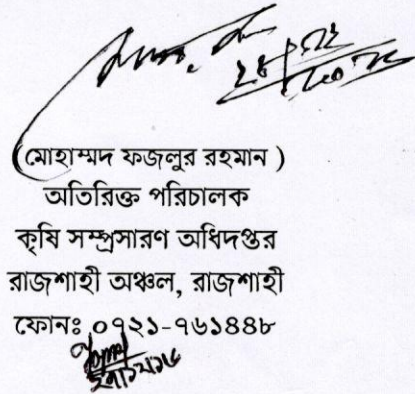 (মোহাম্মদ ফজলুর রহমান )
অতিরিক্ত পরিচালক
কৃষি সম্প্রসারণ অধিদপ্তর
রাজশাহী অঞ্চল, রাজশাহী
ফোনঃ ০৭২১-৭৬১৪৪৮